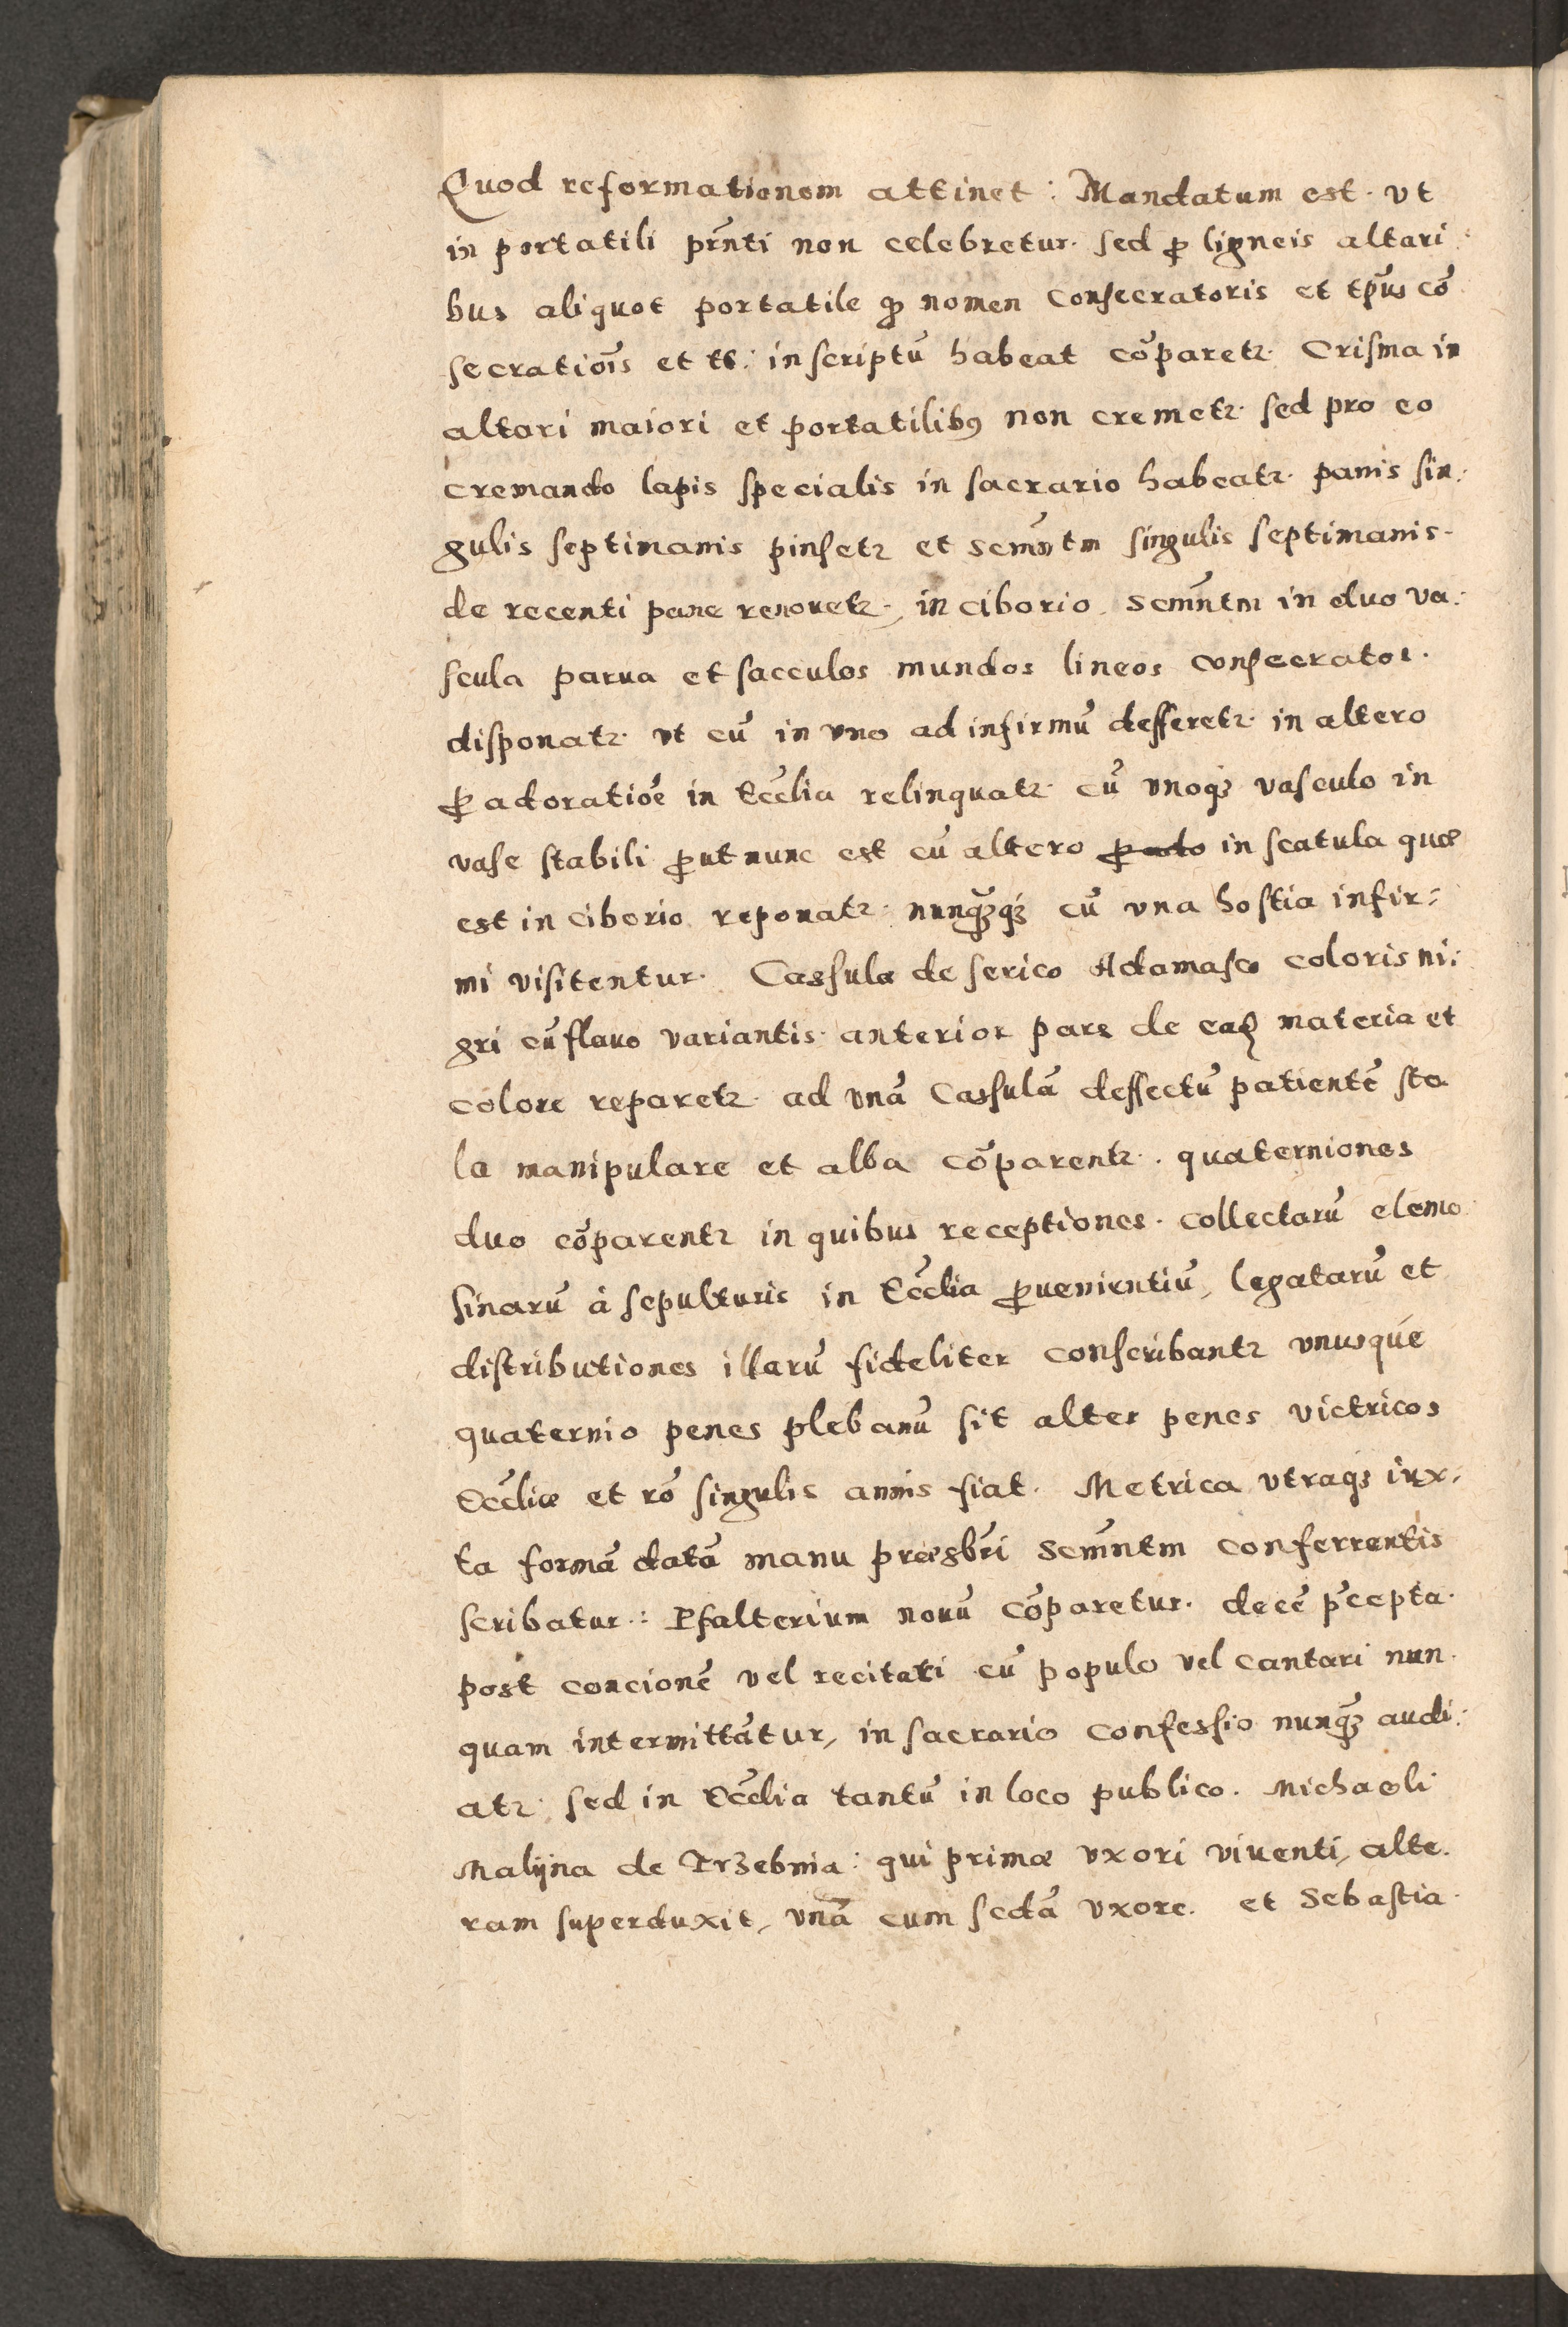 Quod reformationem attinet: Mandatum est. vt
in portatili prẽnti non celebretur. sed ꝓ ligneis altari:
bus aliquot portatile qꝫ nomen Consecratoris et tp̃us cõ
secratiõis et tt: inscriptũ habeat cõparetꝛ. Crisma in
altari maiori et portatilibꝰ non cremetꝛ. sed pro eo
cremando lapis specialis in sacrario habeatꝛ. panis sin:
gulis septimanis pinsetꝛ et scm̃ntm singulis septimanis.
de recenti pane renouetꝛ., in ciborio scm̃ntm in duo va:
scula parua et sacculos mundos lineos consecratos.
disponatꝛ. vt cũ in vno ad infirmũ defferetꝛ. in altero
ꝓ adoratiõe in Ecc̃lia relinquatꝛ. cũ vnoqꝫ vasculo in
vase stabili ꝓut nunc est cũ altero ꝓ ado in scatula quæ
est in ciborio reponatꝛ. nunqꝫ̃qꝫ cũ vna hostia infir:
mi visitentur. Cassula de serico Adamasco coloris ni:
gri cũ flauo variantis. anterior pars de eaꝺ materia et
colore reparetꝛ. ad vnã Cassulã deffectũ patientẽ sto
la manipulare et alba cõparentꝛ. quaterniones
duo cõparentꝛ in quibus receptiones. collectarũ elemo
sinarũ à sepulturis in Ecc̃lia ꝓuenientiũ, legatarũ et
distributiones illarũ fideliter conscribantꝛ vnusque
quaternio penes plebanũ sit alter penes victricos
Ecc̃liæ et rõ singulis annis fiat. Metrica vtraqꝫ iux:
ta formã datã manu præsbr̃i scm̃ntm conferrentis
scribatur.: Psalterium nouũ cõparetur. decẽ p̃cepta.
post concionẽ vel recitari cũ populo vel cantari nun.
quam intermittãtur, in sacrario confessio nunqꝫ̃ audi:
atꝛ. sed in Ecc̃lia tantũ in loco publico. Michaeli
Malijna de Trzebnia: qui primæ vxori viuenti, alte.
ram superduxit, vnã cum secdã vxore. et Sebastia.